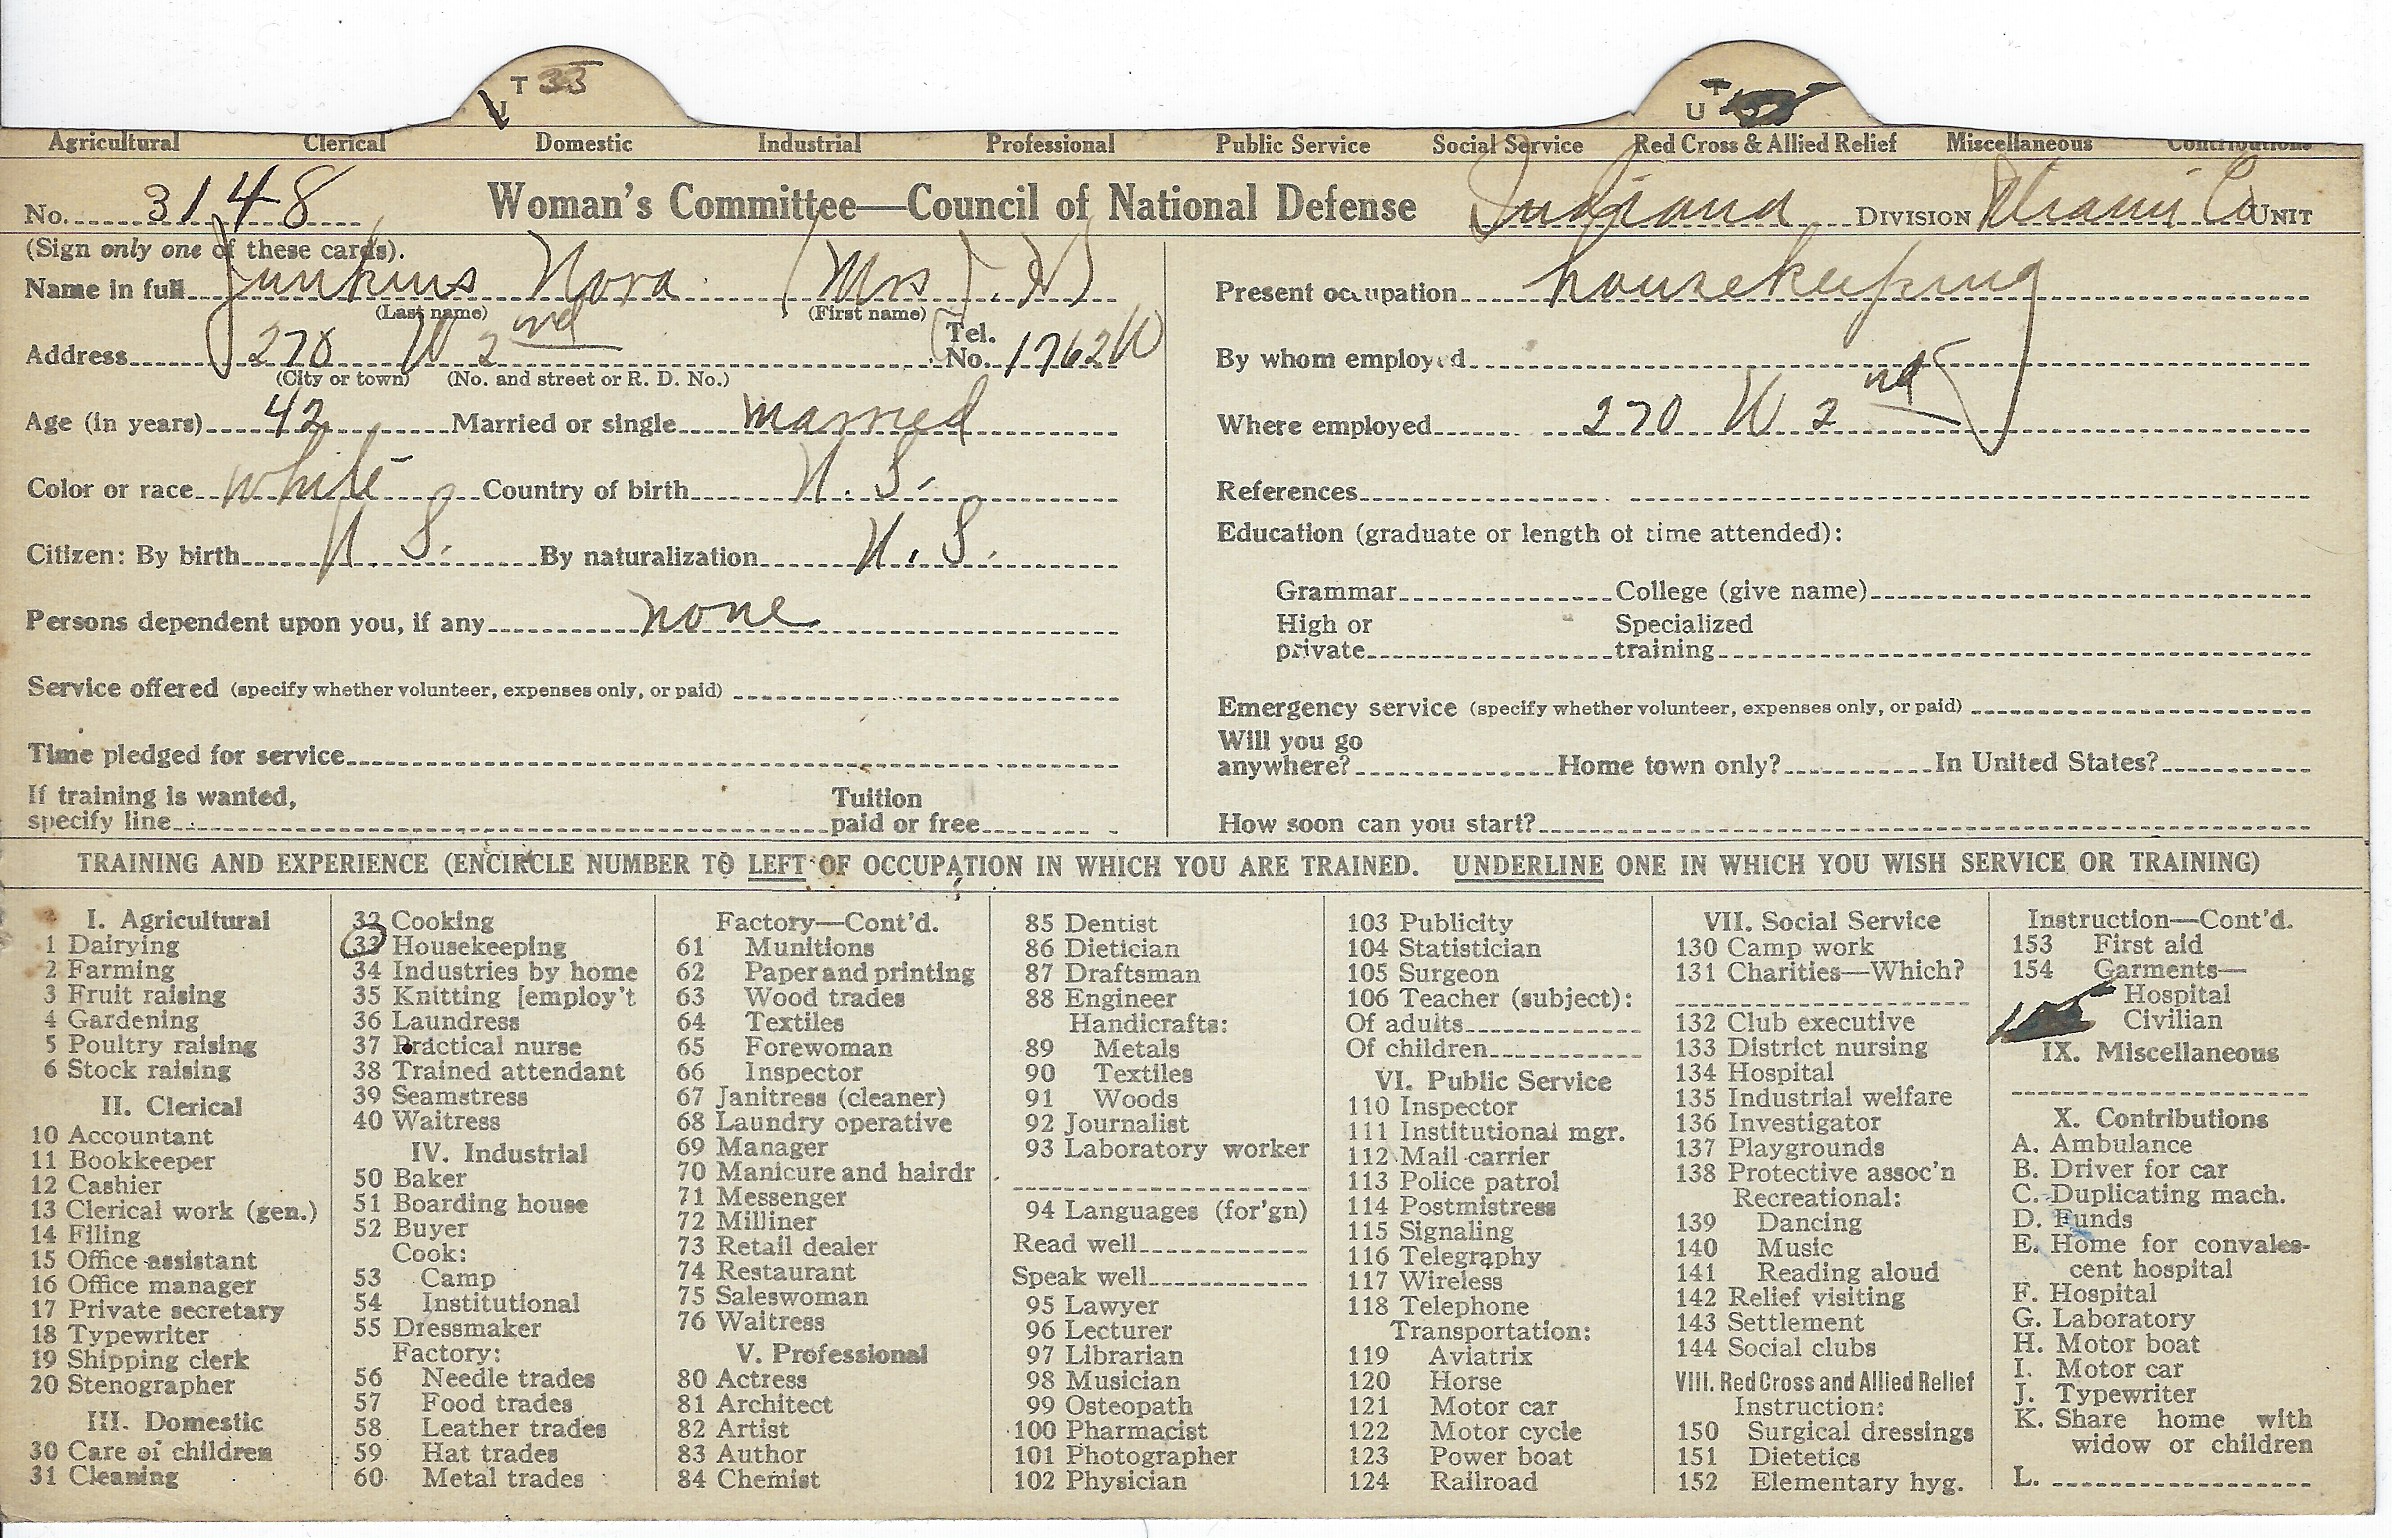 T 33 T
U U
Agricultural Clerical Domestic Industrial Professional Public Service Social Service Red Cross & Allied Relief Miscellaneous Contributions
No. 3148 Woman's Committee—Council of National Defense Indiana DIVISION Miami Co UNIT
(Sign only one of these cards).
Name in full Junkins Nora (Mrs J. H)
(Last name) (First name)
Address 270 W 2nd Tel. No. 1762W
(City or town) (No. and street or R. D. No.)
Age (in years) 42 Married or single married
Color or race white Country of birth U. S.
Citizen: By birth U S. By naturalization U. S.
Persons dependent upon you, if any none
Service offered (specify whether volunteer, expenses only, or paid)
Time pledged for service
If training is wanted, Tuition
specify line paid or free
Present occupation housekeeping
By whom employed
Where employed 270 W 2nd
References
Education (graduate or length of time attended):
Grammar College (give name)
High or Specialized
private training
Emergency service (specify whether volunteer, expenses only, or paid)
Will you go
anywhere? Home town only? In United States?
How soon can you start?
TRAINING AND EXPERIENCE (ENCIRCLE NUMBER TO LEFT OF OCCUPATION IN WHICH YOU ARE TRAINED. UNDERLINE ONE IN WHICH YOU WISH SERVICE OR TRAINING)
I. Agricultural
1 Dairying
2 Farming
3 Fruit raising
4 Gardening
5 Poultry raising
6 Stock raising
II. Clerical
10 Accountant
11 Bookkeeper
12 Cashier
13 Clerical work (gen.)
14 Filing
15 Office assistant
16 Office manager
17 Private secretary
18 Typewriter
19 Shipping clerk
20 Stenographer
III. Domestic
30 Care of children
31 Cleaning
32 Cooking
33 Housekeeping
34 Industries by home
35 Knitting [employ't
36 Laundress
37 Practical nurse
38 Trained attendant
39 Seamstress
40 Waitress
IV. Industrial
50 Baker
51 Boarding house
52 Buyer
Cook:
53 Camp
54 Institutional
55 Dressmaker
Factory:
56 Needle trades
57 Food trades
58 Leather trades
59 Hat trades
60 Metal trades
Factory—Cont'd.
61 Munitions
62 Paper and printing
63 Wood trades
64 Textiles
65 Forewoman
66 Inspector
67 Janitress (cleaner)
68 Laundry operative
69 Manager
70 Manicure and hairdr
71 Messenger
72 Milliner
73 Retail dealer
74 Restaurant
75 Saleswoman
76 Waitress
V. Professional
80 Actress
81 Architect
82 Artist
83 Author
84 Chemist
85 Dentist
86 Dietician
87 Draftsman
88 Engineer
Handicrafts:
89 Metals
90 Textiles
91 Woods
92 Journalist
93 Laboratory worker
94 Languages (for'gn)
Read well
Speak well
95 Lawyer
96 Lecturer
97 Librarian
98 Musician
99 Osteopath
100 Pharmacist
101 Photographer
102 Physician
103 Publicity
104 Statistician
105 Surgeon
106 Teacher (subject):
Of adults
Of children
VI. Public Service
110 Inspector
111 Institutional mgr.
112 Mail carrier
113 Police patrol
114 Postmistress
115 Signaling
116 Telegraphy
117 Wireless
118 Telephone
Transportation:
119 Aviatrix
120 Horse
121 Motor car
122 Motor cycle
123 Power boat
124 Railroad
VII. Social Service
130 Camp work
131 Charities—Which?
132 Club executive
133 District nursing
134 Hospital
135 Industrial welfare
136 Investigator
137 Playgrounds
138 Protective assoc'n
Recreational:
139 Dancing
140 Music
141 Reading aloud
142 Relief visiting
143 Settlement
144 Social clubs
VIII. Red Cross and Allied Relief
Instruction:
150 Surgical dressings
151 Dietetics
152 Elementary hyg.
Instruction—Cont'd.
153 First aid
154 Garments—
Hospital
Civilian
IX. Miscellaneous
X. Contributions
A. Ambulance
B. Driver for car
C. Duplicating mach.
D. Funds
E. Home for convales-
cent hospital
F. Hospital
G. Laboratory
H. Motor boat
I. Motor car
J. Typewriter
K. Share home with
widow or children
L.